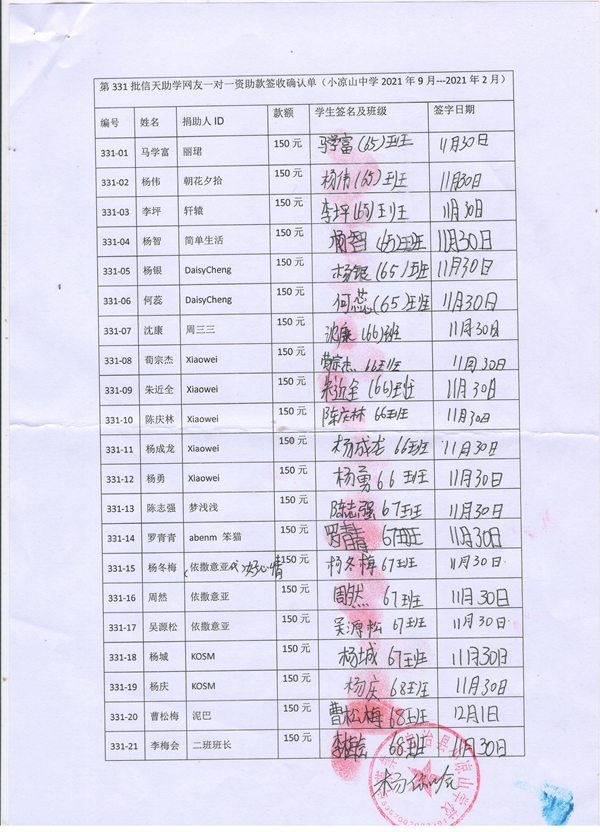 第 331 批信天助学网友一对一资助款签收确认单（小凉山中学 2021 年 9 月---2021 年 2 月）
编号 姓名 捐助人 ID 款额 学生签名及班级 签字日期
331-01 马学富 丽珺 150 元 马学富(65)班 11月30日
331-02 杨伟 朝花夕拾 150 元 杨伟(65)班 11月30日
331-03 李坪 轩辕 150 元 李坪(65)班 11月30日
331-04 杨智 简单生活 150 元 杨智(65)班 11月30日
331-05 杨银 DaisyCheng 150 元 杨银(65)班 11月30日
331-06 何蕊 DaisyCheng 150 元 何蕊(65)班 11月30日
331-07 沈康 周三三 150 元 沈康(66)班 11月30日
331-08 荀宗杰 Xiaowei 150 元 宗杰 66班 11月30日
331-09 朱近全 Xiaowei 150 元 朱近全(66)班 11月30日
331-10 陈庆林 Xiaowei 150 元 陈庆林 66班 11月30日
331-11 杨成龙 Xiaowei 150 元 杨成龙 66班 11月30日
331-12 杨勇 Xiaowei 150 元 杨勇 66班 11月30日
331-13 陈志强 梦浅浅 150 元 陈志强 67班 11月30日
331-14 罗青青 abenm 笨猫 150 元 罗青青 67班 11月30日
331-15 杨冬梅 依撒意亚 好心情 150 元 杨冬梅 67班 11月30日
331-16 周然 依撒意亚 150 元 周然 67班 11月30日
331-17 吴源松 依撒意亚 150 元 吴源松 67班 11月30日
331-18 杨城 KOSM 150 元 杨城 67班 11月30日
331-19 杨庆 KOSM 150 元 杨庆 68班 11月30日
331-20 曹松梅 泥巴 150 元 曹松梅 68班 12月1日
331-21 李梅会 二班班长 150 元 68班 11月30日